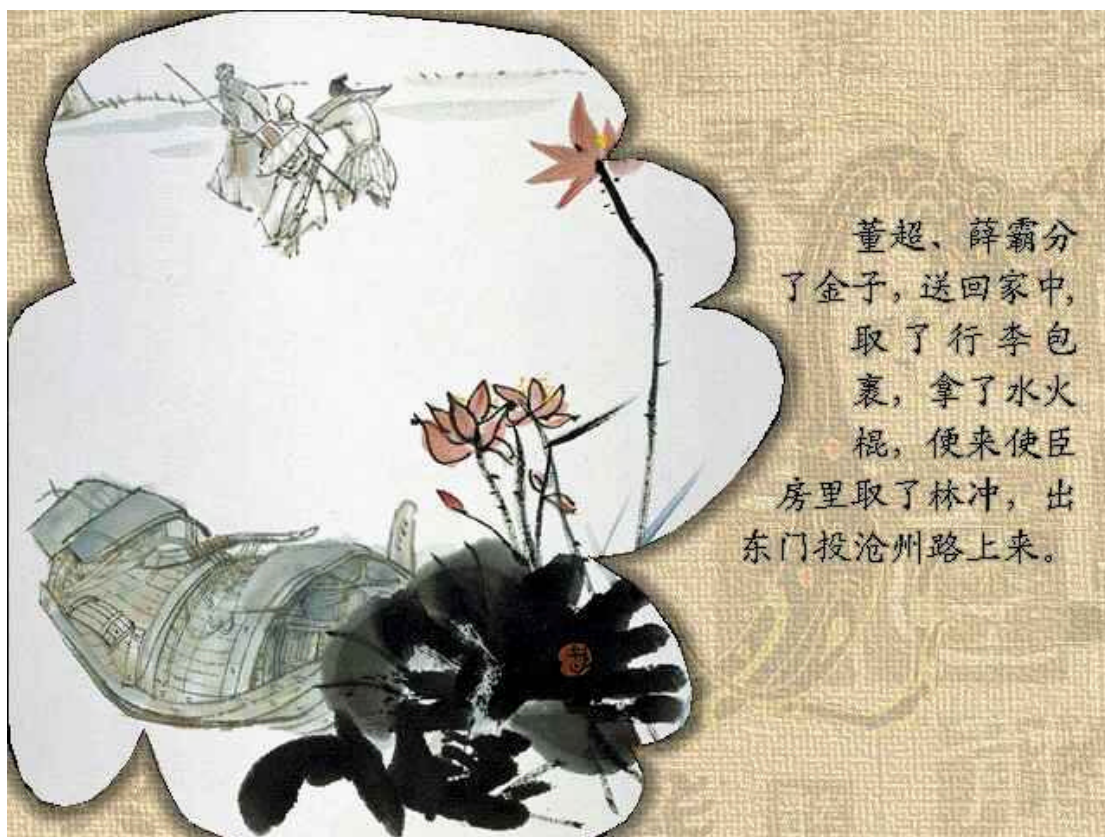 董超、薛霸分
了金子，送回家中，
取了行李包
裹，拿了水火
棍，便来使臣
房里取了林冲，出
东门投沧州路上来。